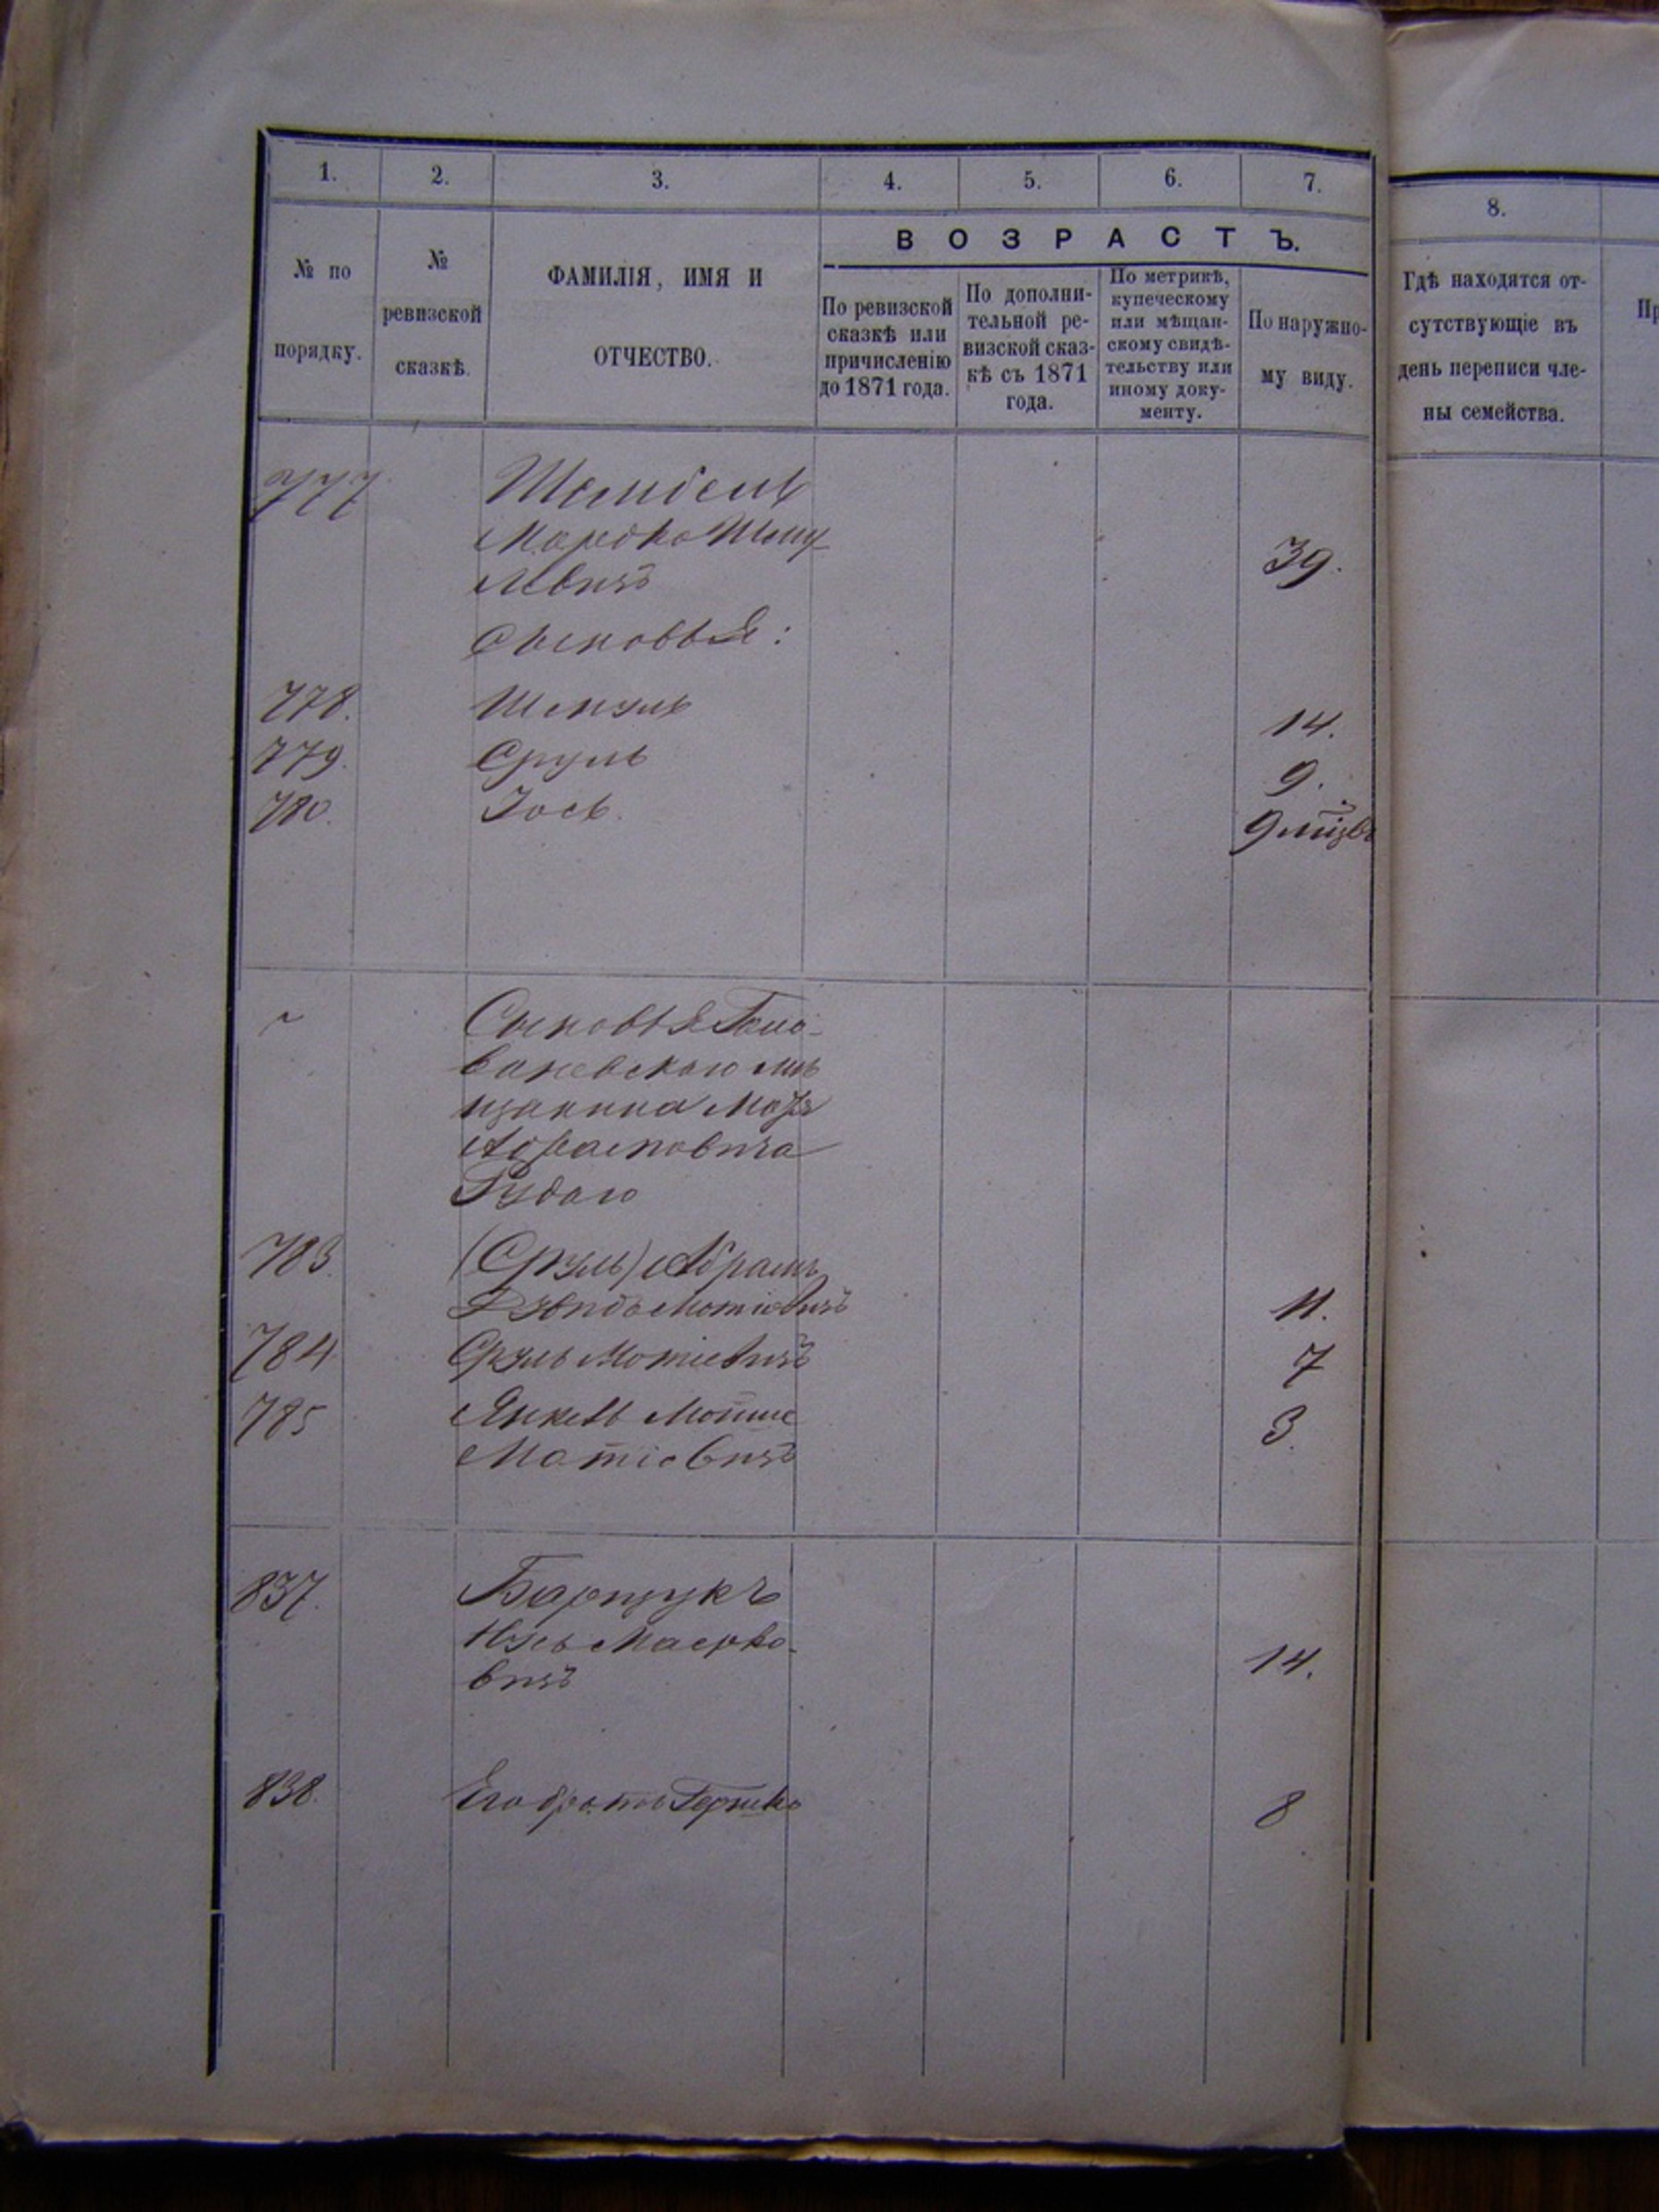 1. 2. 3. 4. 5. 6. 7.
8.
№ по порядку.
№ ревизской сказкѣ.
ФАМИЛІЯ, ИМЯ И
ОТЧЕСТВО.
ВОЗРАСТЪ.
По ревизской
сказкѣ или
причисленію
до 1871 года.
По дополни-
тельной ре-
визской сказ-
кѣ съ 1871
года.
По метрикѣ,
купеческому
или мѣщан-
скому свидѣ-
тельству или
иному доку-
менту.
По наружно-
му виду.
Гдѣ находятся от-
сутствующіе въ
день переписи чле-
ны семейства.
777
Мордко Шму-
левичъ 39.
Сыновья:
778. Шмуль 14.
779. Сруль 9.
780. Іось. 9
Сыновья
щанина
Абрамовича
783. (Сруль) Абрамъ
11.
784 Сруль Мотіевичъ 7
785 Янкель
Мотіевичъ 3.
837. Барщукъ
вичъ 14.
838. Его братъ Гершко 8